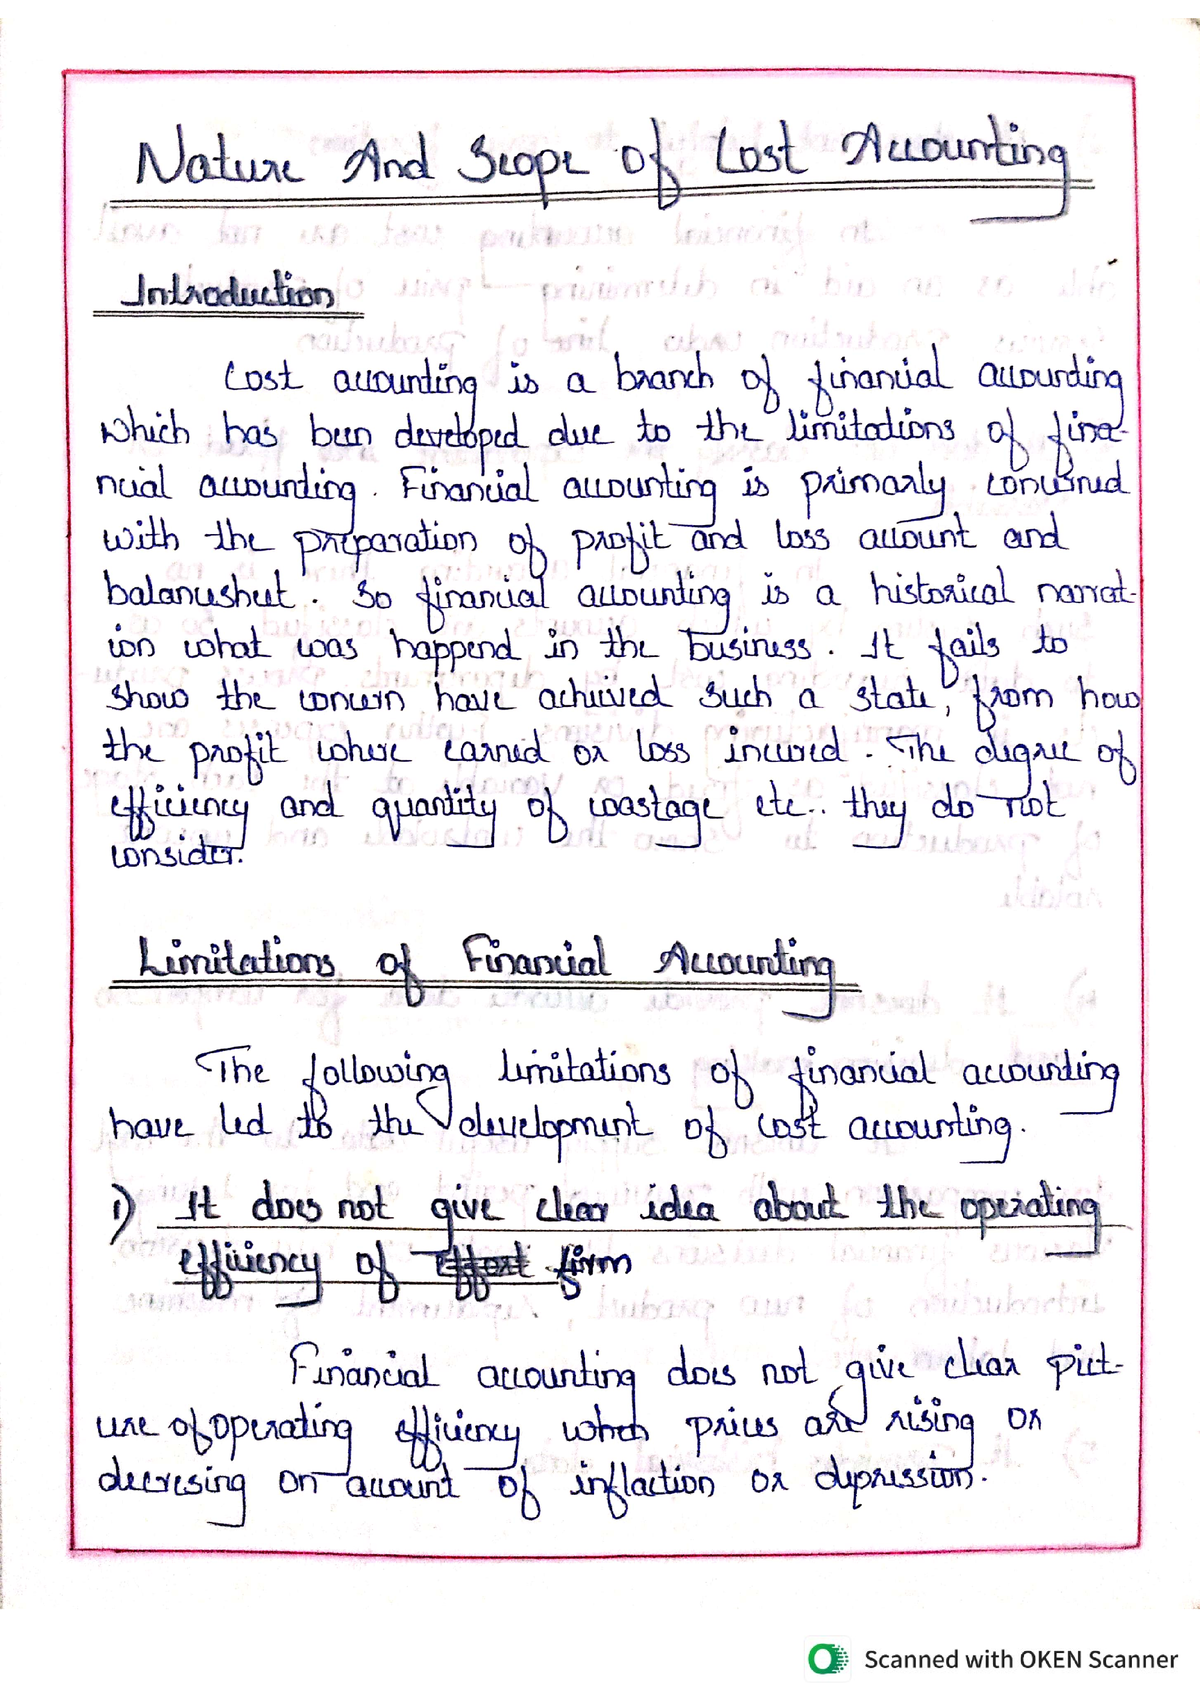 Nature And Scope Of Cost Accounting
Introduction
Cost accounting is a branch of financial accounting
which has been developed due to the limitations of fina-
ncial accounting. Financial accounting is primarly concerned
with the preparation of profit and loss account and
balancesheet. So financial accounting is a historical narrat-
ion what was happend in the business. It fails to
show the concern have acheived such a state, from how
the profit where earned or loss incured. The degree of
efficiency and quantity of wastage etc.. they do not
consider.
Limitations of Financial Accounting
The following limitations of financial accounting
have led to the development of cost accounting.
1) It does not give clear idea about the operating
efficiency of firm
Financial accounting does not give clear pict-
ure of operating efficiency when prices are rising or
decresing on account of inflaction or depression.
Scanned with OKEN Scanner